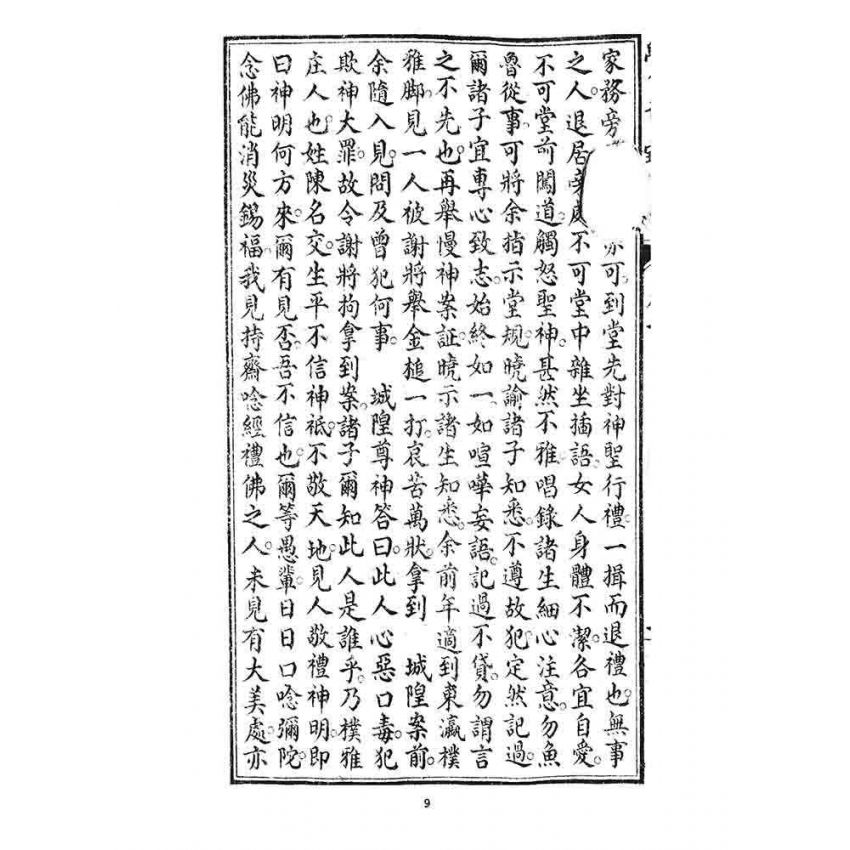 家務旁亦可。到堂先對神聖行禮。一揖而退禮也。無事
之人。退居旁處。不可堂中雜坐插語。女人身體不潔。各宜自愛。
不可堂前闖道。觸怒聖神。甚然不雅。唱錄諸生細心注意。勿魚
魯從事。可將余指示堂規。曉諭諸子知悉。不遵故犯。定然記過。
爾諸子宜專心致志。始終如一。如喧嘩妄語。記過不貸。勿謂言
之不先也。再舉慢神案証。曉示諸生知悉。余前年適到東瀛樸
雅脚。見一人被謝將舉金槌一打。哀苦萬狀。拿到 城隍案前。
余隨入見。問及曾犯何事。 城隍尊神答曰。此人心惡口毒。犯
欺神大罪。故令謝將拘拿到案。諸子爾知此人是誰乎。乃樸雅
庄人也。姓陳名交。生平不信神祇。不敬天地。見人敬禮神明。即
曰神明何方來。爾有見否。吾不信也。爾等愚輩。日日口唸彌陀。
念佛能消災錫福。我見持齋唸經禮佛之人。未見有大美處。亦
9